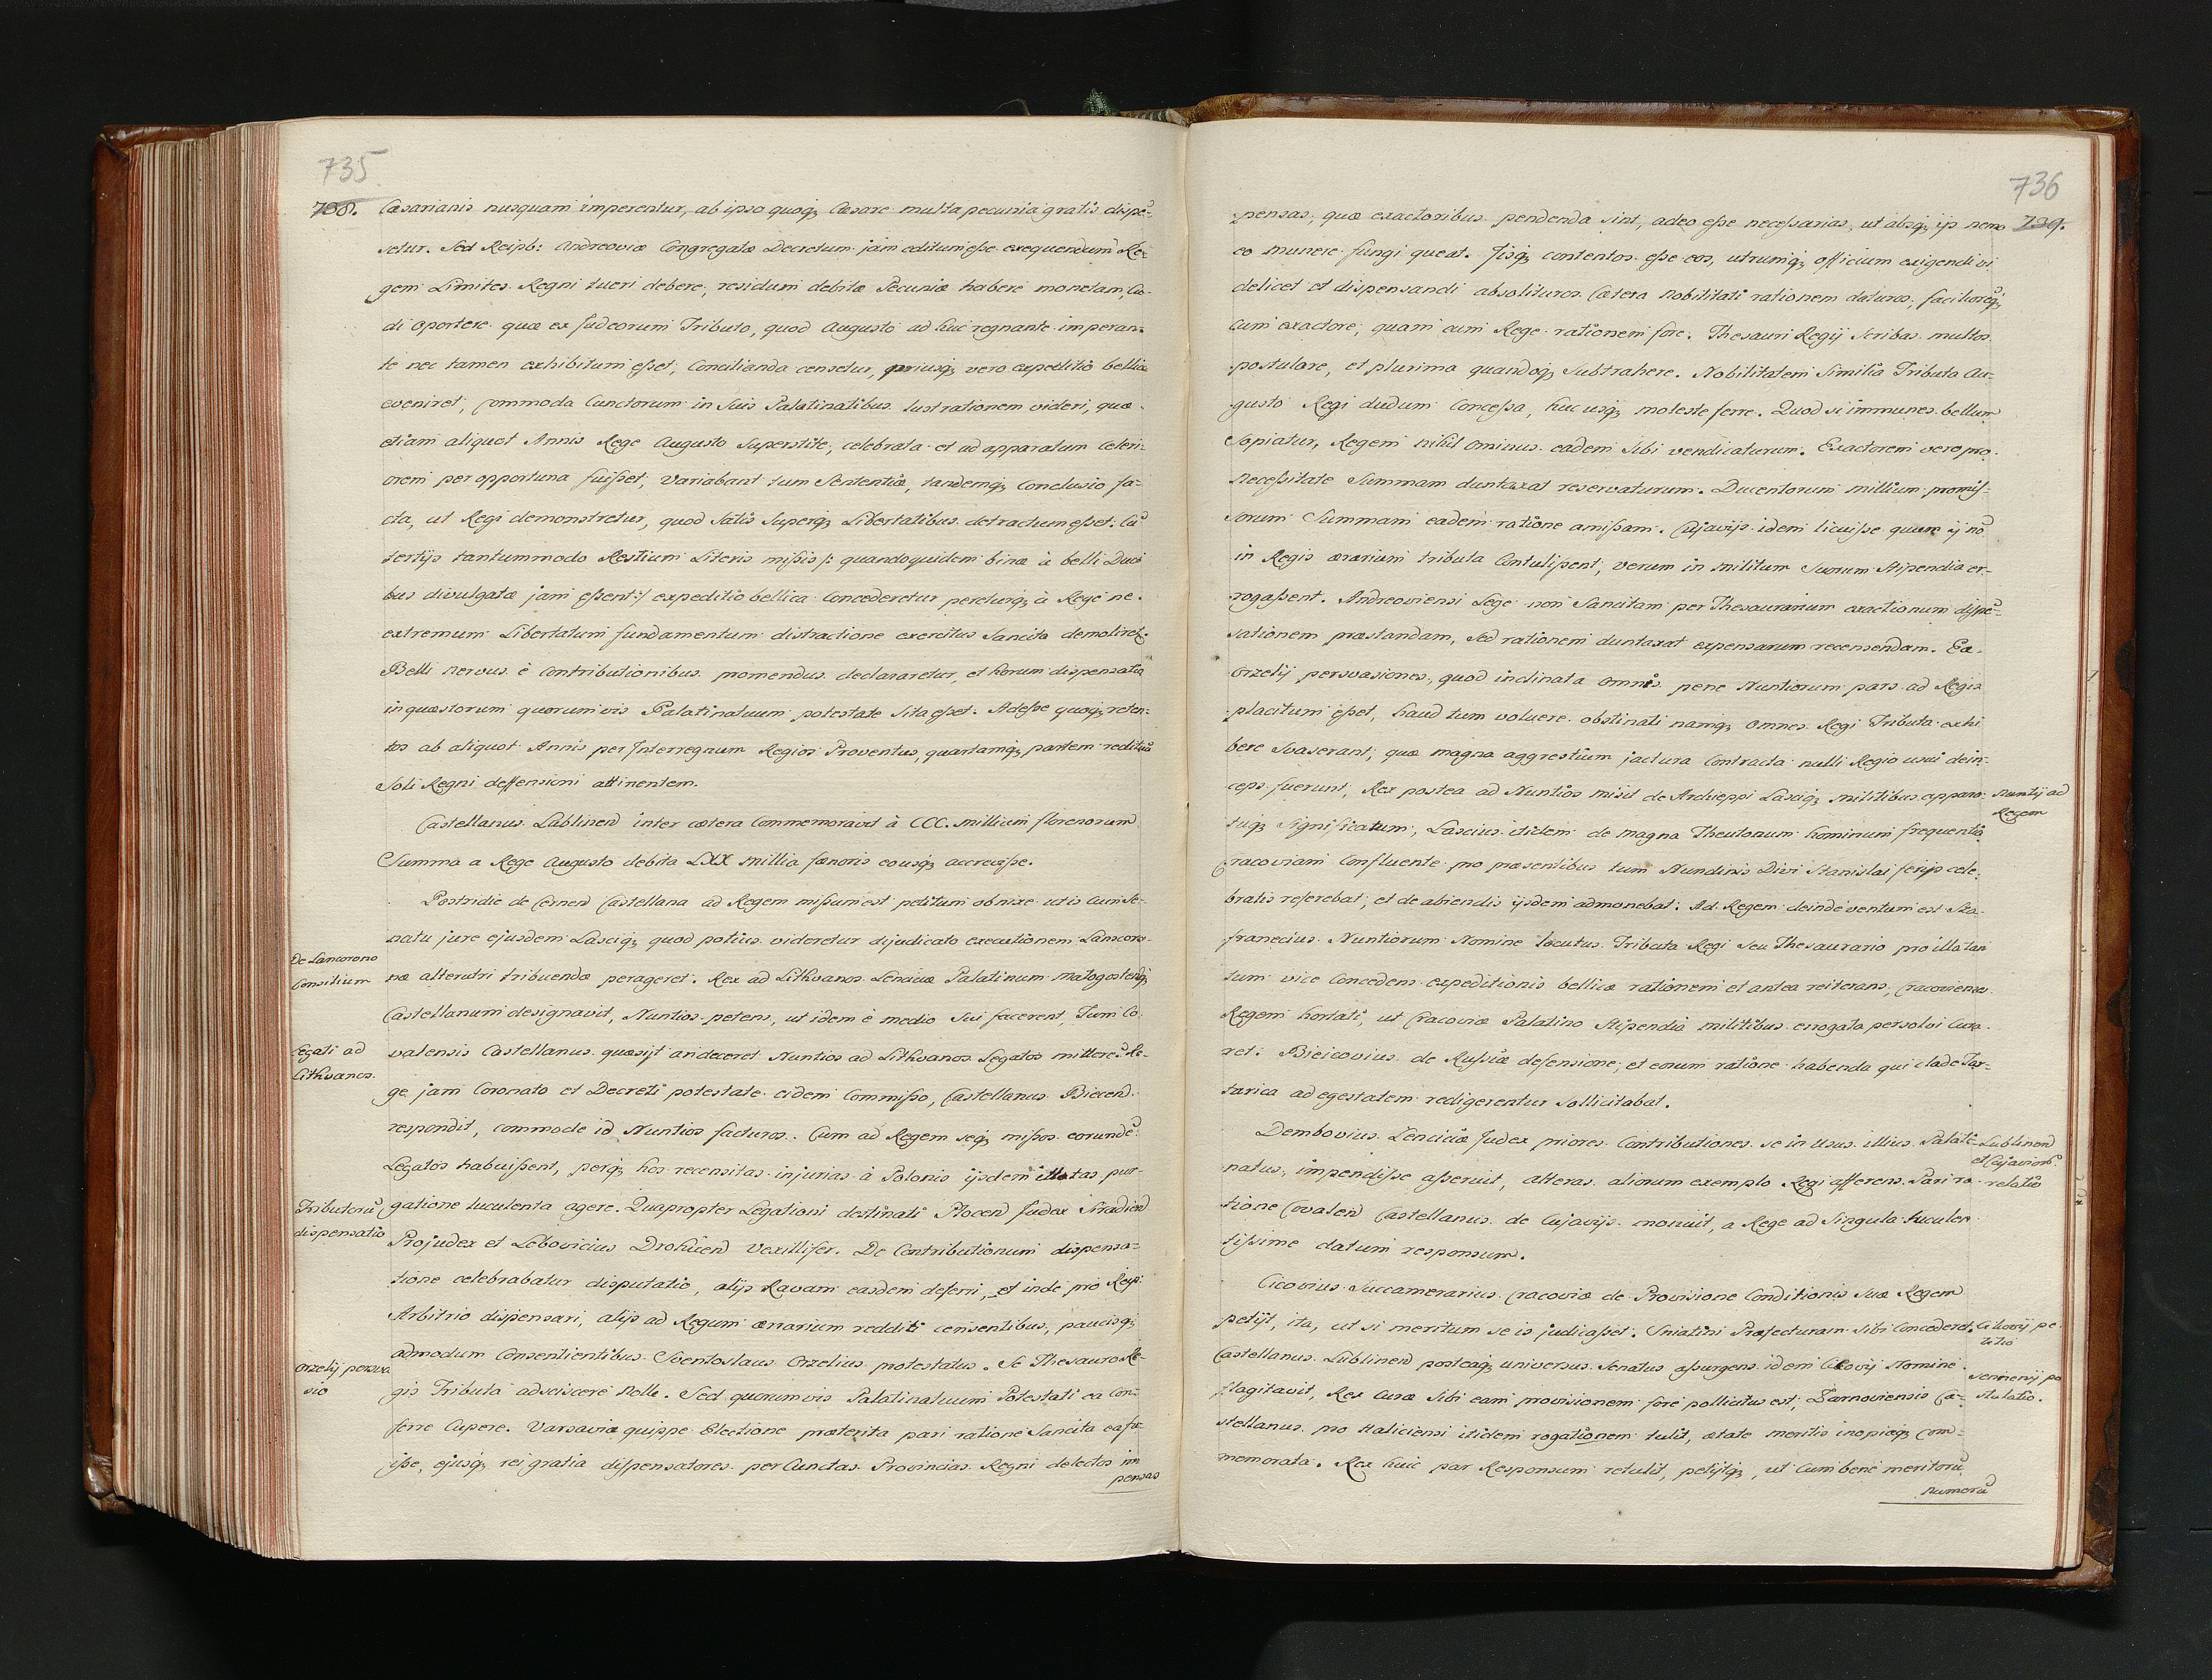 735
738.
Cæsarianis nusquam imperentur, ab ipso quoq; Cæsare multa pecunia gratis dispē-
setur. Sed Reipb: Andreoviæ Congregatæ Decretum jam editum esse exequendum Re-
gem Limites Regni tueri debere, residum debitæ Pecuniæ habere monetam, Cu-
di oportere quæ ex Judeorum Tributo, quod Augusto ad huc regnante imperan-
te nec tamen exhibitum esset, Concilianda censetur, priusq; vero expeditio bellica
eveniret, commoda Cunctorum in Suis Palatinatibus lustrationem videri, quæ
etiam aliquot Annis Rege Augusto Superstite, celebrata et ad apparatum celeri-
orem per opportuna fuisset, variabant tum Sententiæ, tandemq; Conclusio fa-
cta, ut Regi demonstretur, quod Satis Superq; Libertatibus detractum esset. Cū
tertijs tantummodo Restium Literis missis /: quandoquidem binæ à belli Duci
bus divulgatæ jam essent :/ expeditio bellica Concederetur pereturq; à Rege ne
extremum Libertatum fundamentum distractione exercitus Sancita demoliret.
Belli nervus è Contributionibus promendus declararetur, et horum dispensatio
in quæstorum quorumvis Palatinatuum potestate Sita esset. Adesse quoq; reten-
tos ab aliquot Annis per Interregnum Regios Proventus, quartamq; partem redituū
Soli Regni deffensioni attinentem.
Castellanus Lublinen inter cætera Commemoravit à CCC. millium florenorum
Summa a Rege Augusto debita LXX millia fænoris eousq; accrevisse.
Postridie de Camen Castellana ad Regem missum est petitum obnixe ut is Cum Se-
natu jure ejusdem Lasciq; quod potius videretur dijudicato executionem Lanscoro-
De Lanscorono
Consilium
næ alterutri tribuendæ perageret. Rex ad Lithvanos Lenciciæ Palatinum Małogostenq;
Castellanum designavit, Nuntios petens, ut idem è medio Sui facerent, Tum Co-
Legati ad
Lithvanos.
valensis Castellanus quæsijt an deceret Nuntios ad Lithvanos Legatos mittere? Re-
ge jam Coronato et Decreti potestate eidem Commisso, Castellanus Biecen
respondit, commode id Nuntios facturos. Cum ad Regem seq; missos eorundē
Legatos habuissent, perq; hos recensitas injurias à Polonis ijsdem illatas pur-
Tributorū
dispensatio
gatione luculenta agere. Quapropter Legationi destinati Plocen Judex Siradien
Projudex et Lebovicius Drohicen Vexillifer. De Contributionum dispensa-
tione celebrabatur disputatio, alijs Ravam easdem deferri, et inde pro Reip:
Arbitrio dispensari, alijs ad Regum ærarium redditi censentibus, paucisq;
Orzelij persva
sio
admodum Consentientibus. Sventoslaus Orzelius protestatus. Se Thesauro Re-
gis Tributa adsciscere Nolle. Sed quorumvis Palatinatuum Potestati ea Con-
ferre Cupere. Varsaviæ quippe Electione præterita pari ratione Sancita ea fu-
isse, ejusq; rei gratia dispensatores per Cunctas Provincias Regni delectos im
pensas
736
739.
pensas, quæ exactoribus pendenda sint, adeo esse necessarias, ut absq; ijs nemo
eo munere fungi queat. Jisq; contentos esse eos, utrumq; officium exigendi vi
delicet et dispensandi absolituros Cætera Nobilitati rationem daturos, facilioreq;
Cum exactore, quam cum Rege rationem fore. Thesauri Regij Scribas multos
postulare, et plurima quandoq; Subtrahere. Nobilitatem Similia Tributa Au-
gusto Regi dudum Concessa, huc usq; moleste ferre. Quod si immunes bellum
Sopiatur, Regem nihil ominus eadem Sibi vendicaturum. Exactorem vero pro
Necessitate Summam duntaxat reservaturum. Ducentorum millium promis-
sorum Summam eadem ratione amissam. Cujavijs idem licuisse quum ij nō
in Regis ærarium tributa Contulissent, verum in militum Suorum Stipendia er-
rogassent. Andreoviensi Lege non Sancitam per Thesaurarium exactionum dispē-
sationem præstandam, Sed rationem duntaxat expensarum recensendam. Eæ
Orzelij persvasiones, quod inclinata omnis pene Nuntiorum pars ad Regis
placitum esset, haud tum voluere obstinati namq; omnes Regi Tributa exhi
bere Svaserant, quæ magna aggrestium jactura Contracta nulli Regio usui dein-
ceps fuerunt, Rex postea ad Nuntios misit de Archieppi Lasciq; militibus appara-
Nuntij ad
Regem
tuq; Significatum, Lascius itidem de magna Theutonum hominum frequentia
Cracoviam Confluente pro præsentibus tum Nundinis Divi Stanislai ferijs cele-
bratis referebat, et de abiendis ijsdem admonebat. Ad Regem deinde ventum est Sza-
franecius Nuntiorum Nomine locutus Tributa Regi Seu Thesaurario pro illa tan
tum vice Concedens expeditionis bellicæ rationem et antea reiterans, Cracovienses
Regem hortati, ut Cracoviæ Palatino Stipendia militibus errogata persolvi Cura-
ret. Bieicovius de Russiæ defensione, et eorum ratione habenda qui clade Tar-
tarica ad egestatem redigerentur Sollicitabat.
Dembovius Lenciciæ Judex priores Contributiones se in usus illius Palati-
Lublinen
et Cujavior
relatio
natus, impendisse asseruit, alteras aliorum exemplo Regi afferens. Pari ra-
tione Covalen Castellanus de Cujavijs monuit, a Rege ad Singula luculen-
tissime datum responsum.
Cicovius Succamerarius Cracoviæ de Provisione Conditionis Suæ Regem
petijt, ita, ut si meritum se is judicasset. Sniatini Præfecturam Sibi Concederet.
Cikovij pe
titio
Castellanus Lublinen posteaq; universus Senatus assurgens idem Cikovij Nomine
flagitavit, Rex Curæ Sibi eam provisionem fore pollicitus est, Tarnoviensis Ca-
Seniensij po
stulatio.
stellanus pro Haliciensi itidem rogationem tulit, ætate meritis inopiaq; Com-
memorata. Rex huic par Responsum retulit, petijtq;, ut Cum bene meritorū
numerū